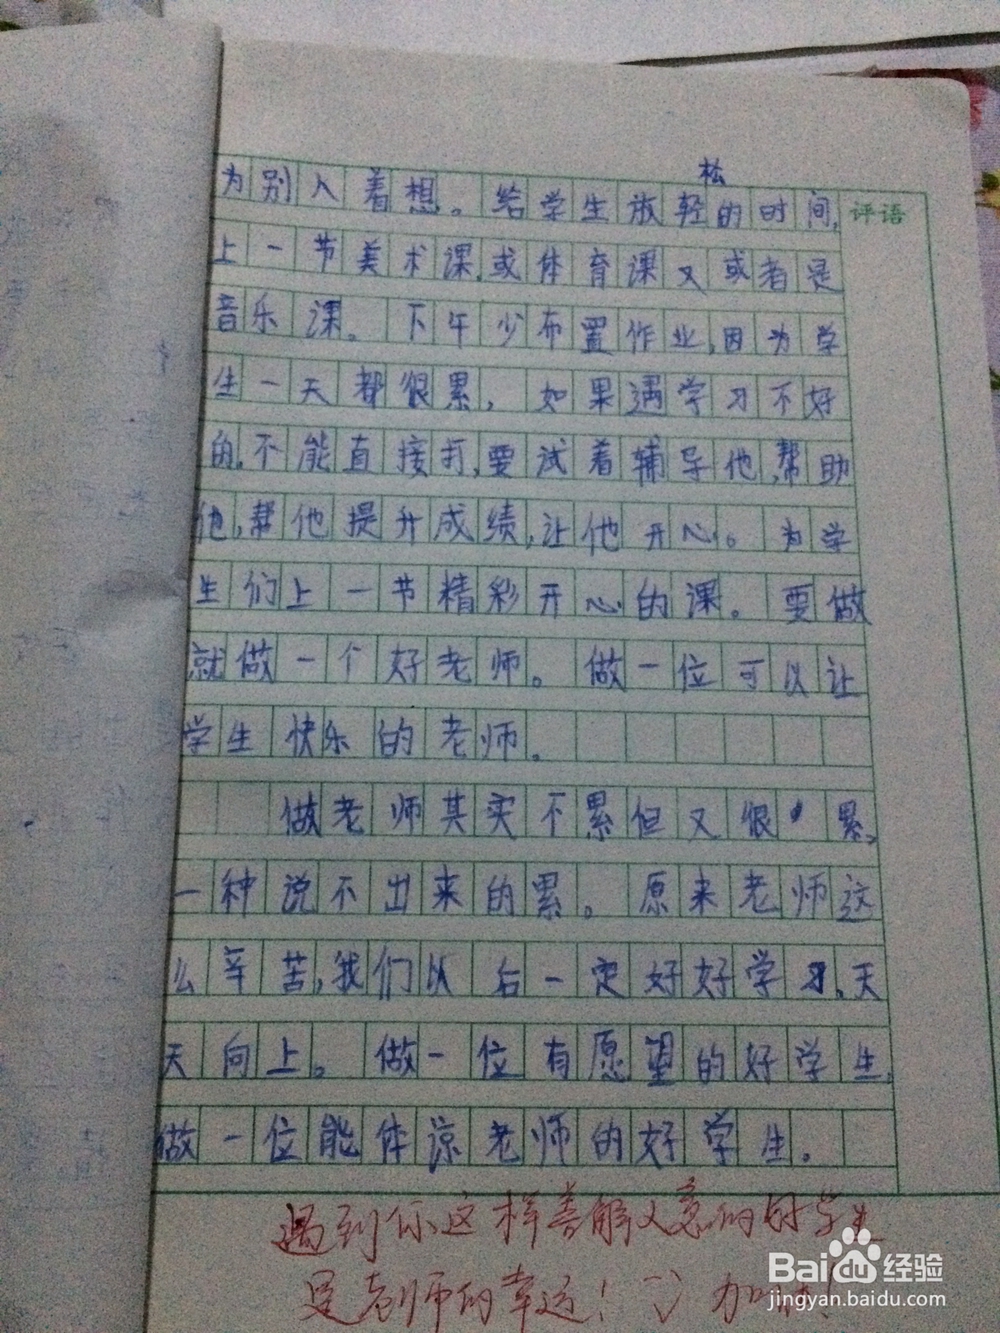 松
为别人着想。给学生放轻的时间,评语
上一节美术课,或体育课又或者是
音乐课。下午少布置作业,因为学
生一天都很累,如果遇学习不好
的,不能直接打,要试着辅导他,帮助
他,帮他提升成绩,让他开心。为学
生们上一节精彩开心的课。要做
就做一个好老师。做一位可以让
学生快乐的老师。
做老师其实不累但又很累,
一种说不出来的累。原来老师这
么辛苦,我们以后一定好好学习,天
天向上。做一位有愿望的好学生,
做一位能体谅老师的好学生。
遇到你这样善解人意的好学生
是老师的幸运!:) 加油!
Baidu经验
jingyan.baidu.com